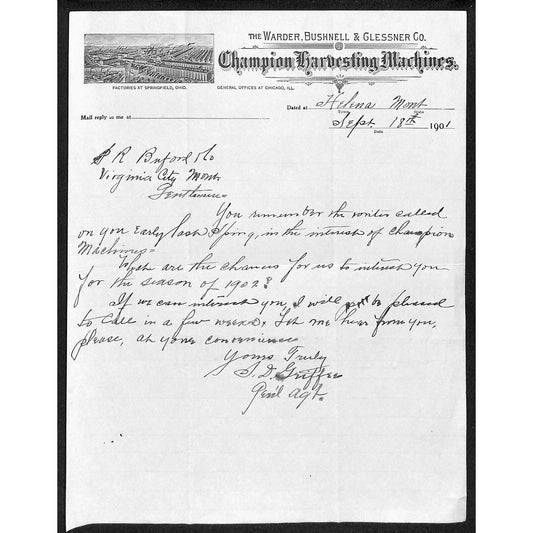 THE WARDER, BUSHNELL & GLESSNER CO.
Champion Harvesting Machines.
FACTORIES AT SPRINGFIELD, OHIO.
GENERAL OFFICES AT CHICAGO, ILL.
Dated at Helena Mont
Town State
Mail reply to me at
Sept. 18th 1901
Date
S R Buford & Co
Virginia City Mont
Gentlemen
You remember the writer called
on you Early last Spring, in the interest of Champion
Machines
What are the chances for us to interest you
for the season of 1902?
If we can interest you, I will be pleased
to Call in a few weeks. Let me hear from you,
please, at your convenience
Yours Truly
S. D.
Gen'l Agt.